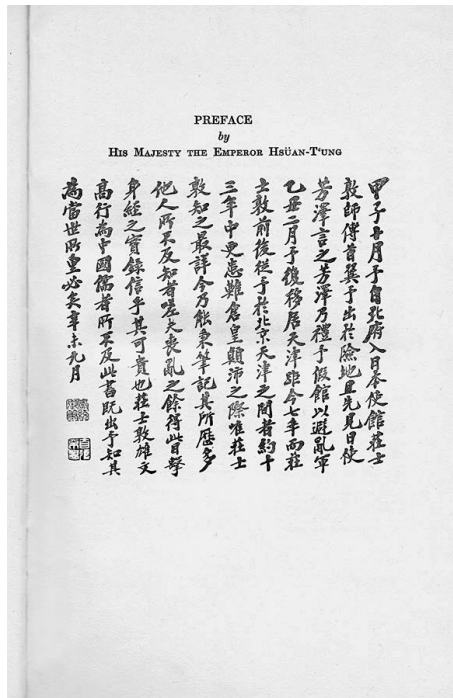 PREFACE
by
HIS MAJESTY THE EMPEROR HSÜAN-T‘UNG
甲子十月予自北府入日本使館莊士
敦師傅首翼予出於險地且先見日使
芳澤言之芳澤乃禮予假館以避亂軍
乙丑二月予復移居天津距今七年而莊
士敦前後從予於北京天津之間者約十
三年中更患難倉皇顛沛之際唯莊士
敦知之最詳今乃能秉筆記其所歷多
他人所不及知者嗟夫喪亂之餘得此目擊
身經之實錄信乎其可貴也莊士敦雄文
高行為中國儒者所不及此書既出予知其
為當世所重必矣辛未九月